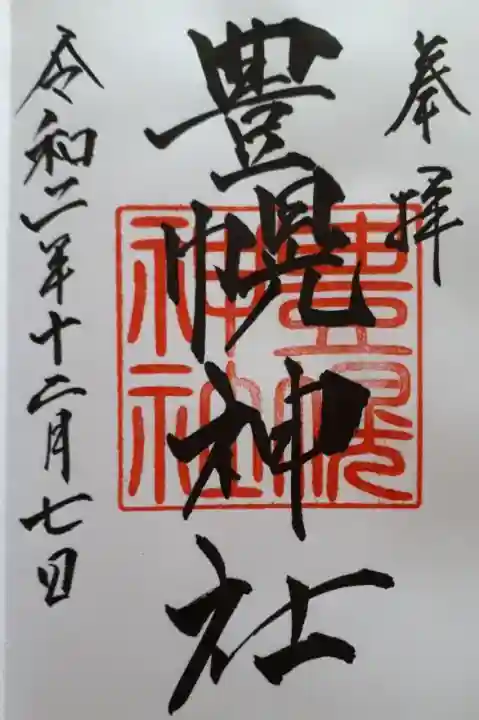 奉拝
豊幌神社
豊幌神社
令和二年十二月七日